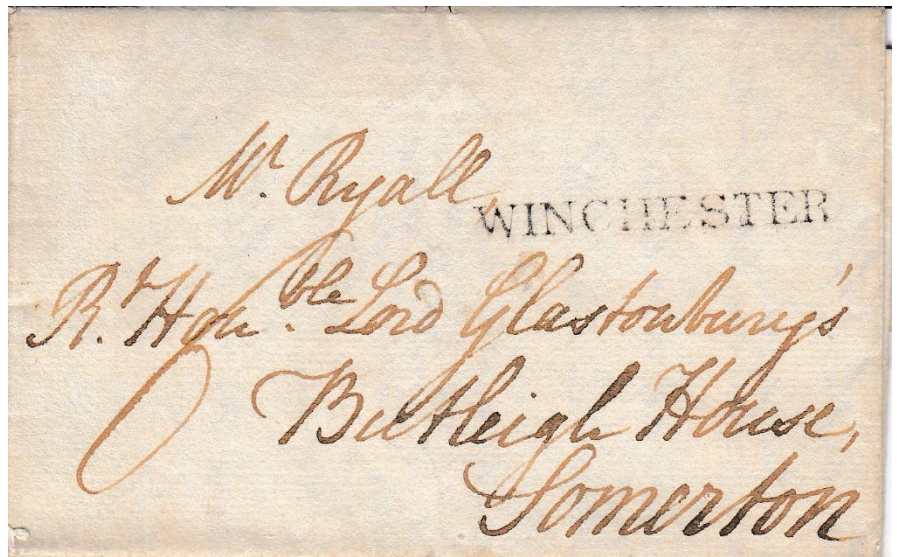 Mr. Ryall,
WINCHESTER
Rt. Honble. Lord Glastonbury's
Butleigh House,
Somerton